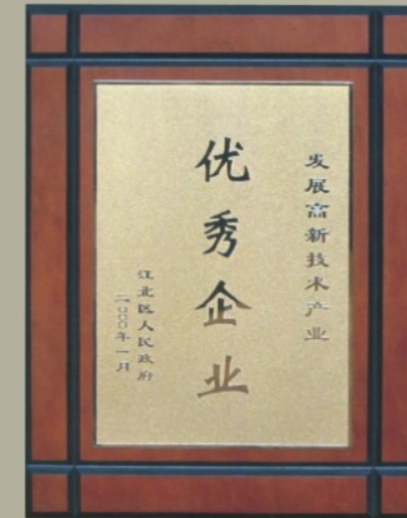 发展高新技术产业
优秀企业
江北区人民政府
二〇〇〇年一月